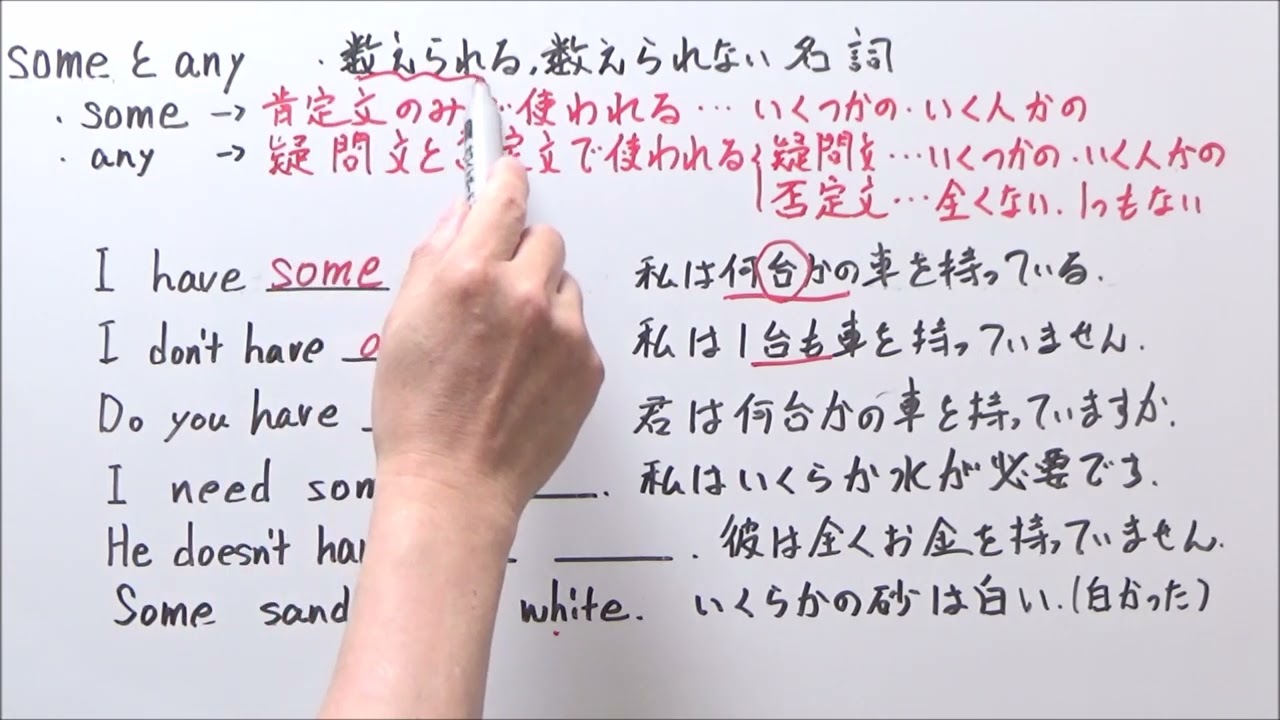 someと any ・数えられる,数えられない名詞
・some → 肯定文のみ で使われる … いくつかの・いく人かの
・any → 疑問文と 定文で使われる 疑問文…いくつかの・いく人かの
否定文…全くない.1つもない
I have some 私は何台かの車を持っている.
I don't have 私は1台も車を持っていません.
Do you have 君は何台かの車を持っていますか.
I need ____. 私はいくらか水が必要です.
He doesn't ____. 彼は全くお金を持っていません.
Some sand white. いくらかの砂は白い.(白かった)